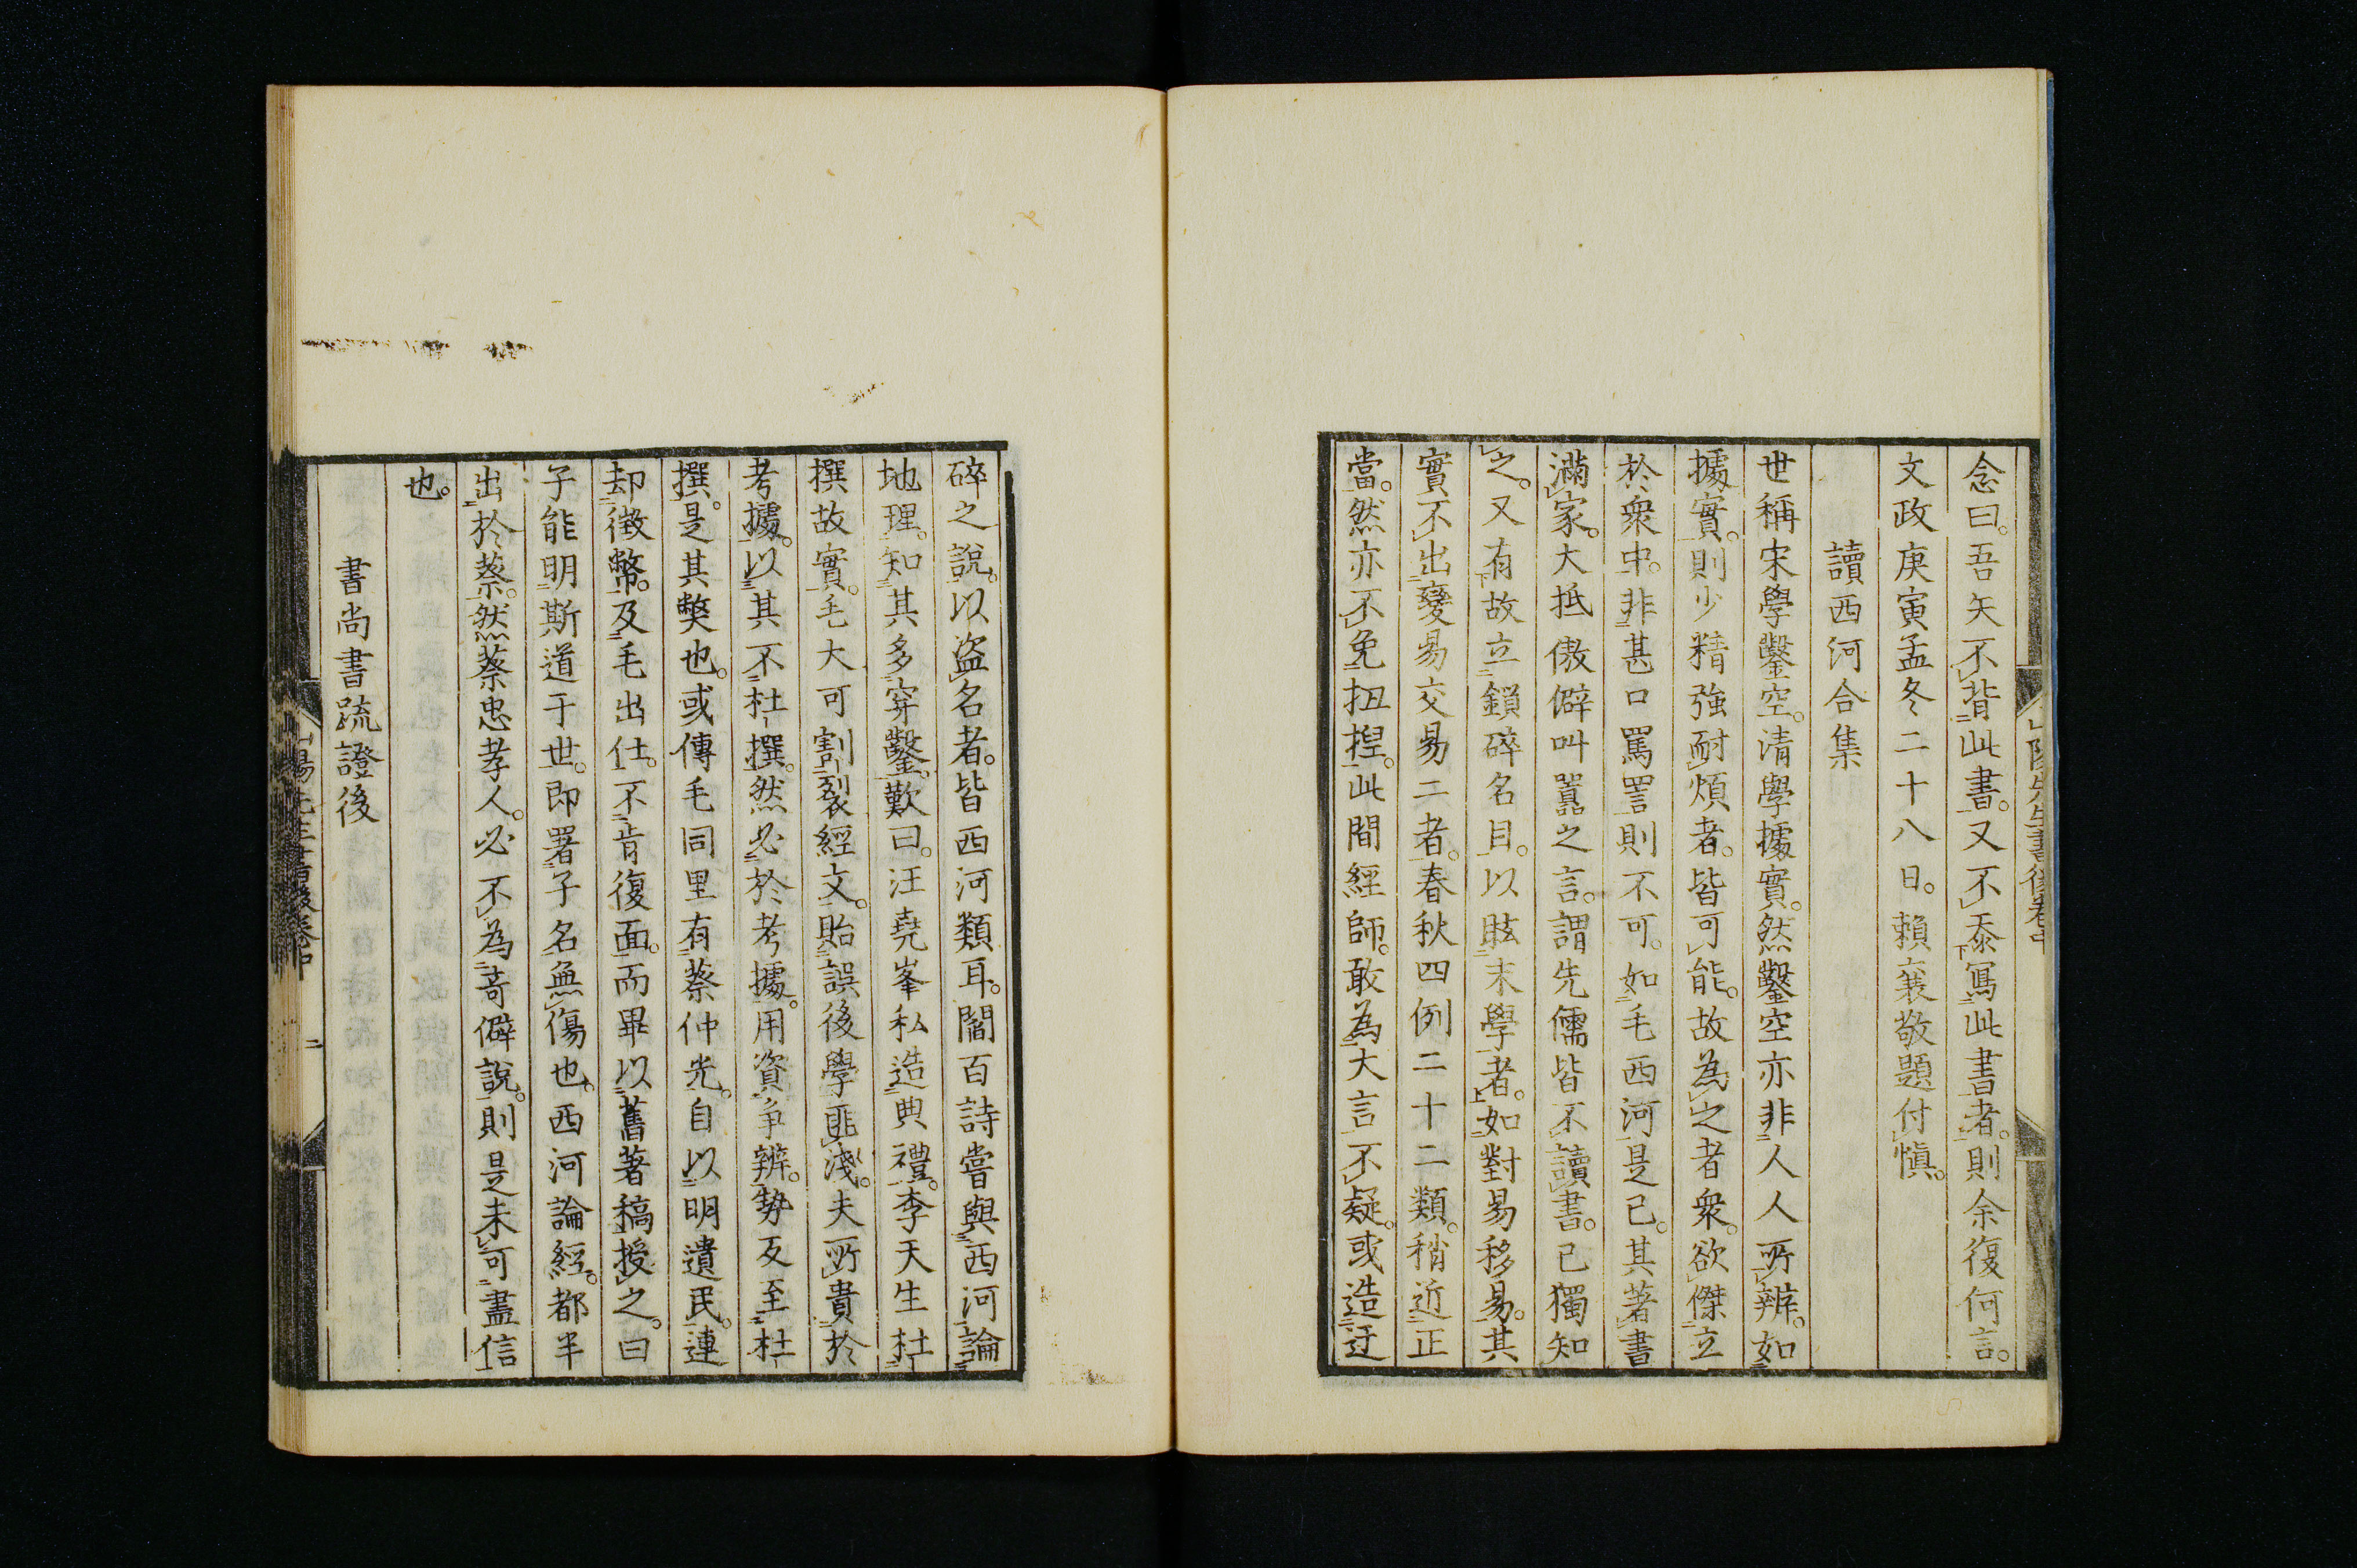 念曰。吾矢不背此書。又不忝寫此書者。則余復何言。
文政庚寅孟冬二十八日。賴襄敬題付愼。
讀西河合集
世稱宋學鑿空。清學據實。然鑿空亦非人人所辨。如
據實。則少精強耐煩者。皆可能。故為之者衆。欲傑立
於衆中。非甚口罵詈則不可。如毛西河是已。其著書
滿家。大抵傲僻叫囂之言。謂先儒皆不讀書。已獨知
之。又有故立鎖碎名目。以眩末學者。如對易移易。其
實不出變易交易二者。春秋四例二十二類。稍近正
當。然亦不免扭揑。此間經師。敢為大言不疑。或造迂
碎之說。以盜名者。皆西河類耳。閻百詩嘗與西河論
地理。知其多穿鑿。歎曰。汪堯峯私造典禮。李天生杜
撰故實。毛大可割裂經文。貽誤後學匪淺。夫所貴於
考據。以其不杜撰。然必於考據。用資爭辨。勢反至杜
撰。是其獘也。或傳毛同里有蔡仲光。自以明遺民。連
却徵幣。及毛出仕。不肯復面。而畢以舊著稿授之。曰
子能明斯道于世。即署子名無傷也。西河論經。都半
出於蔡。然蔡忠孝人。必不為苛僻說。則是未可盡信
也。
書尚書疏證後
山陽先生書後卷中
山陽先生書後卷中 二